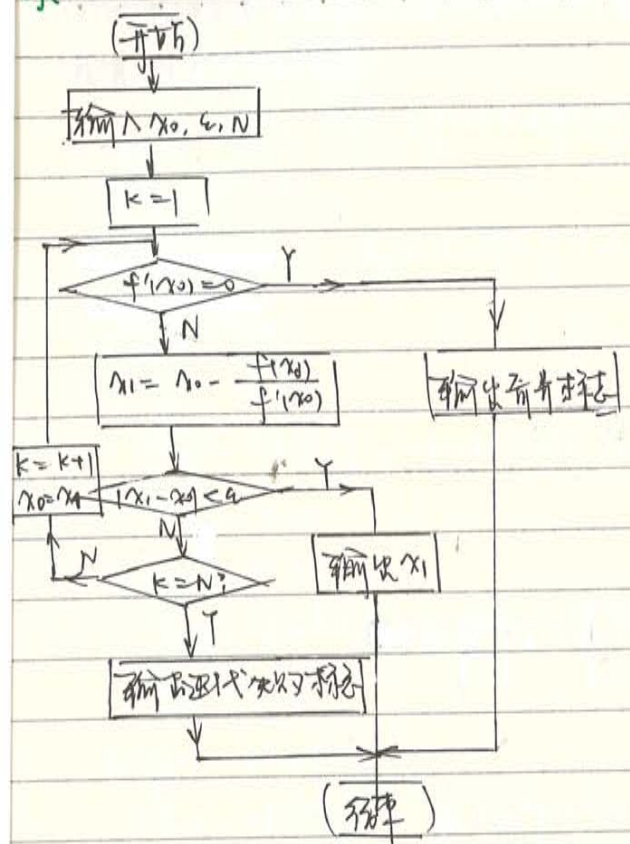 (开始)
输入 x0, ε, N
k=1
f'(x0)=0
Y
N
x1 = x0 - f(x0)/f'(x0)
输出奇异标志
k=k+1
x0=x1
|x1-x0|<ε
Y
N
输出 x1
k=N?
N
Y
输出迭代失败标志
(结束)